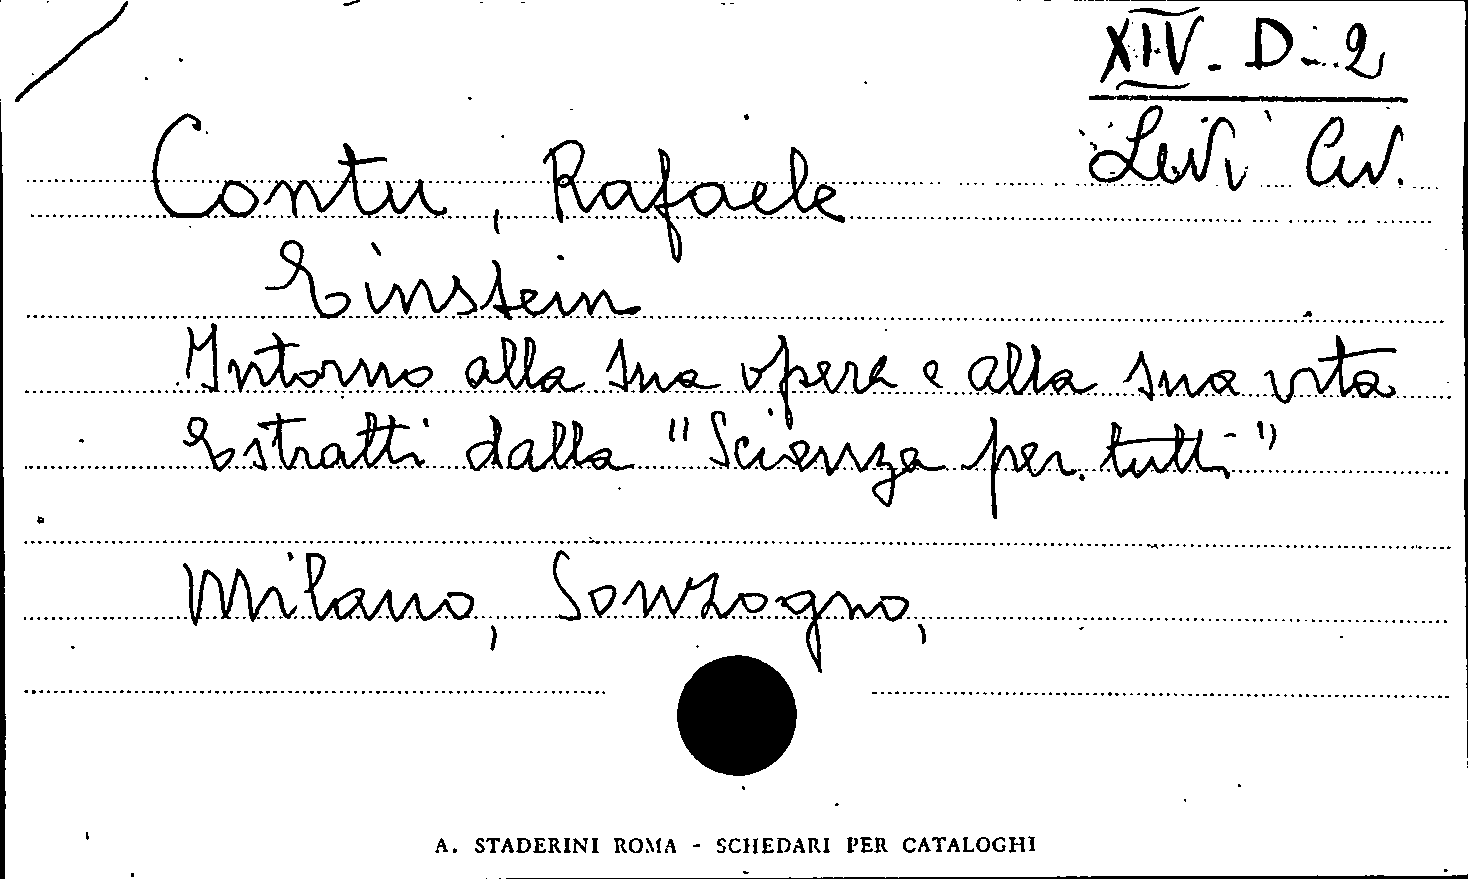 XIV - D - 2
Levi Civ.
Contu, Rafaele
Einstein
Intorno alla sua opera e alla sua vita
Estratti dalla "Scienza per tutti"
Milano, Sonzogno,
A. STADERINI ROMA - SCHEDARI PER CATALOGHI